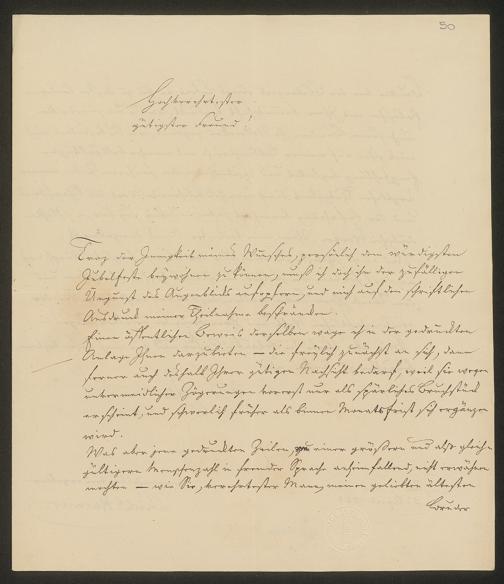 50
Hochverehrtester
gütigster Freund!
Troz der Innigkeit meines Wunsches, persönlich dem würdigsten
Jubelfeste beywohnen zu können, muß ich doch ihn der zufälligen
Ungunst des Augenbliks aufopfern, und mich auf den schriftlichen
Ausdruck meiner Theilnahme beschränken.
Einen öffentlichen Beweis derselben wage ich in der gedruckten
Anlage Ihnen darzubieten — die freylich zunächst an sich, dann
ferner auch deshalb Ihrer gütigen Nachsicht bedarf, weil sie wegen
unvermeidlicher Zögerungen vorerst nur als spärliches Bruchstück
erscheint, und schwerlich früher als binnen Monatsfrist sich ergänzen
wird.
Was aber jene gedruckten Zeilen, einer größern und
gültigern Menschenzahl in fremder Sprache anheimfallend, nicht erwähnen
mochten — wie Sie, verehrtester Mann, meinen geliebten ältesten
Bruder